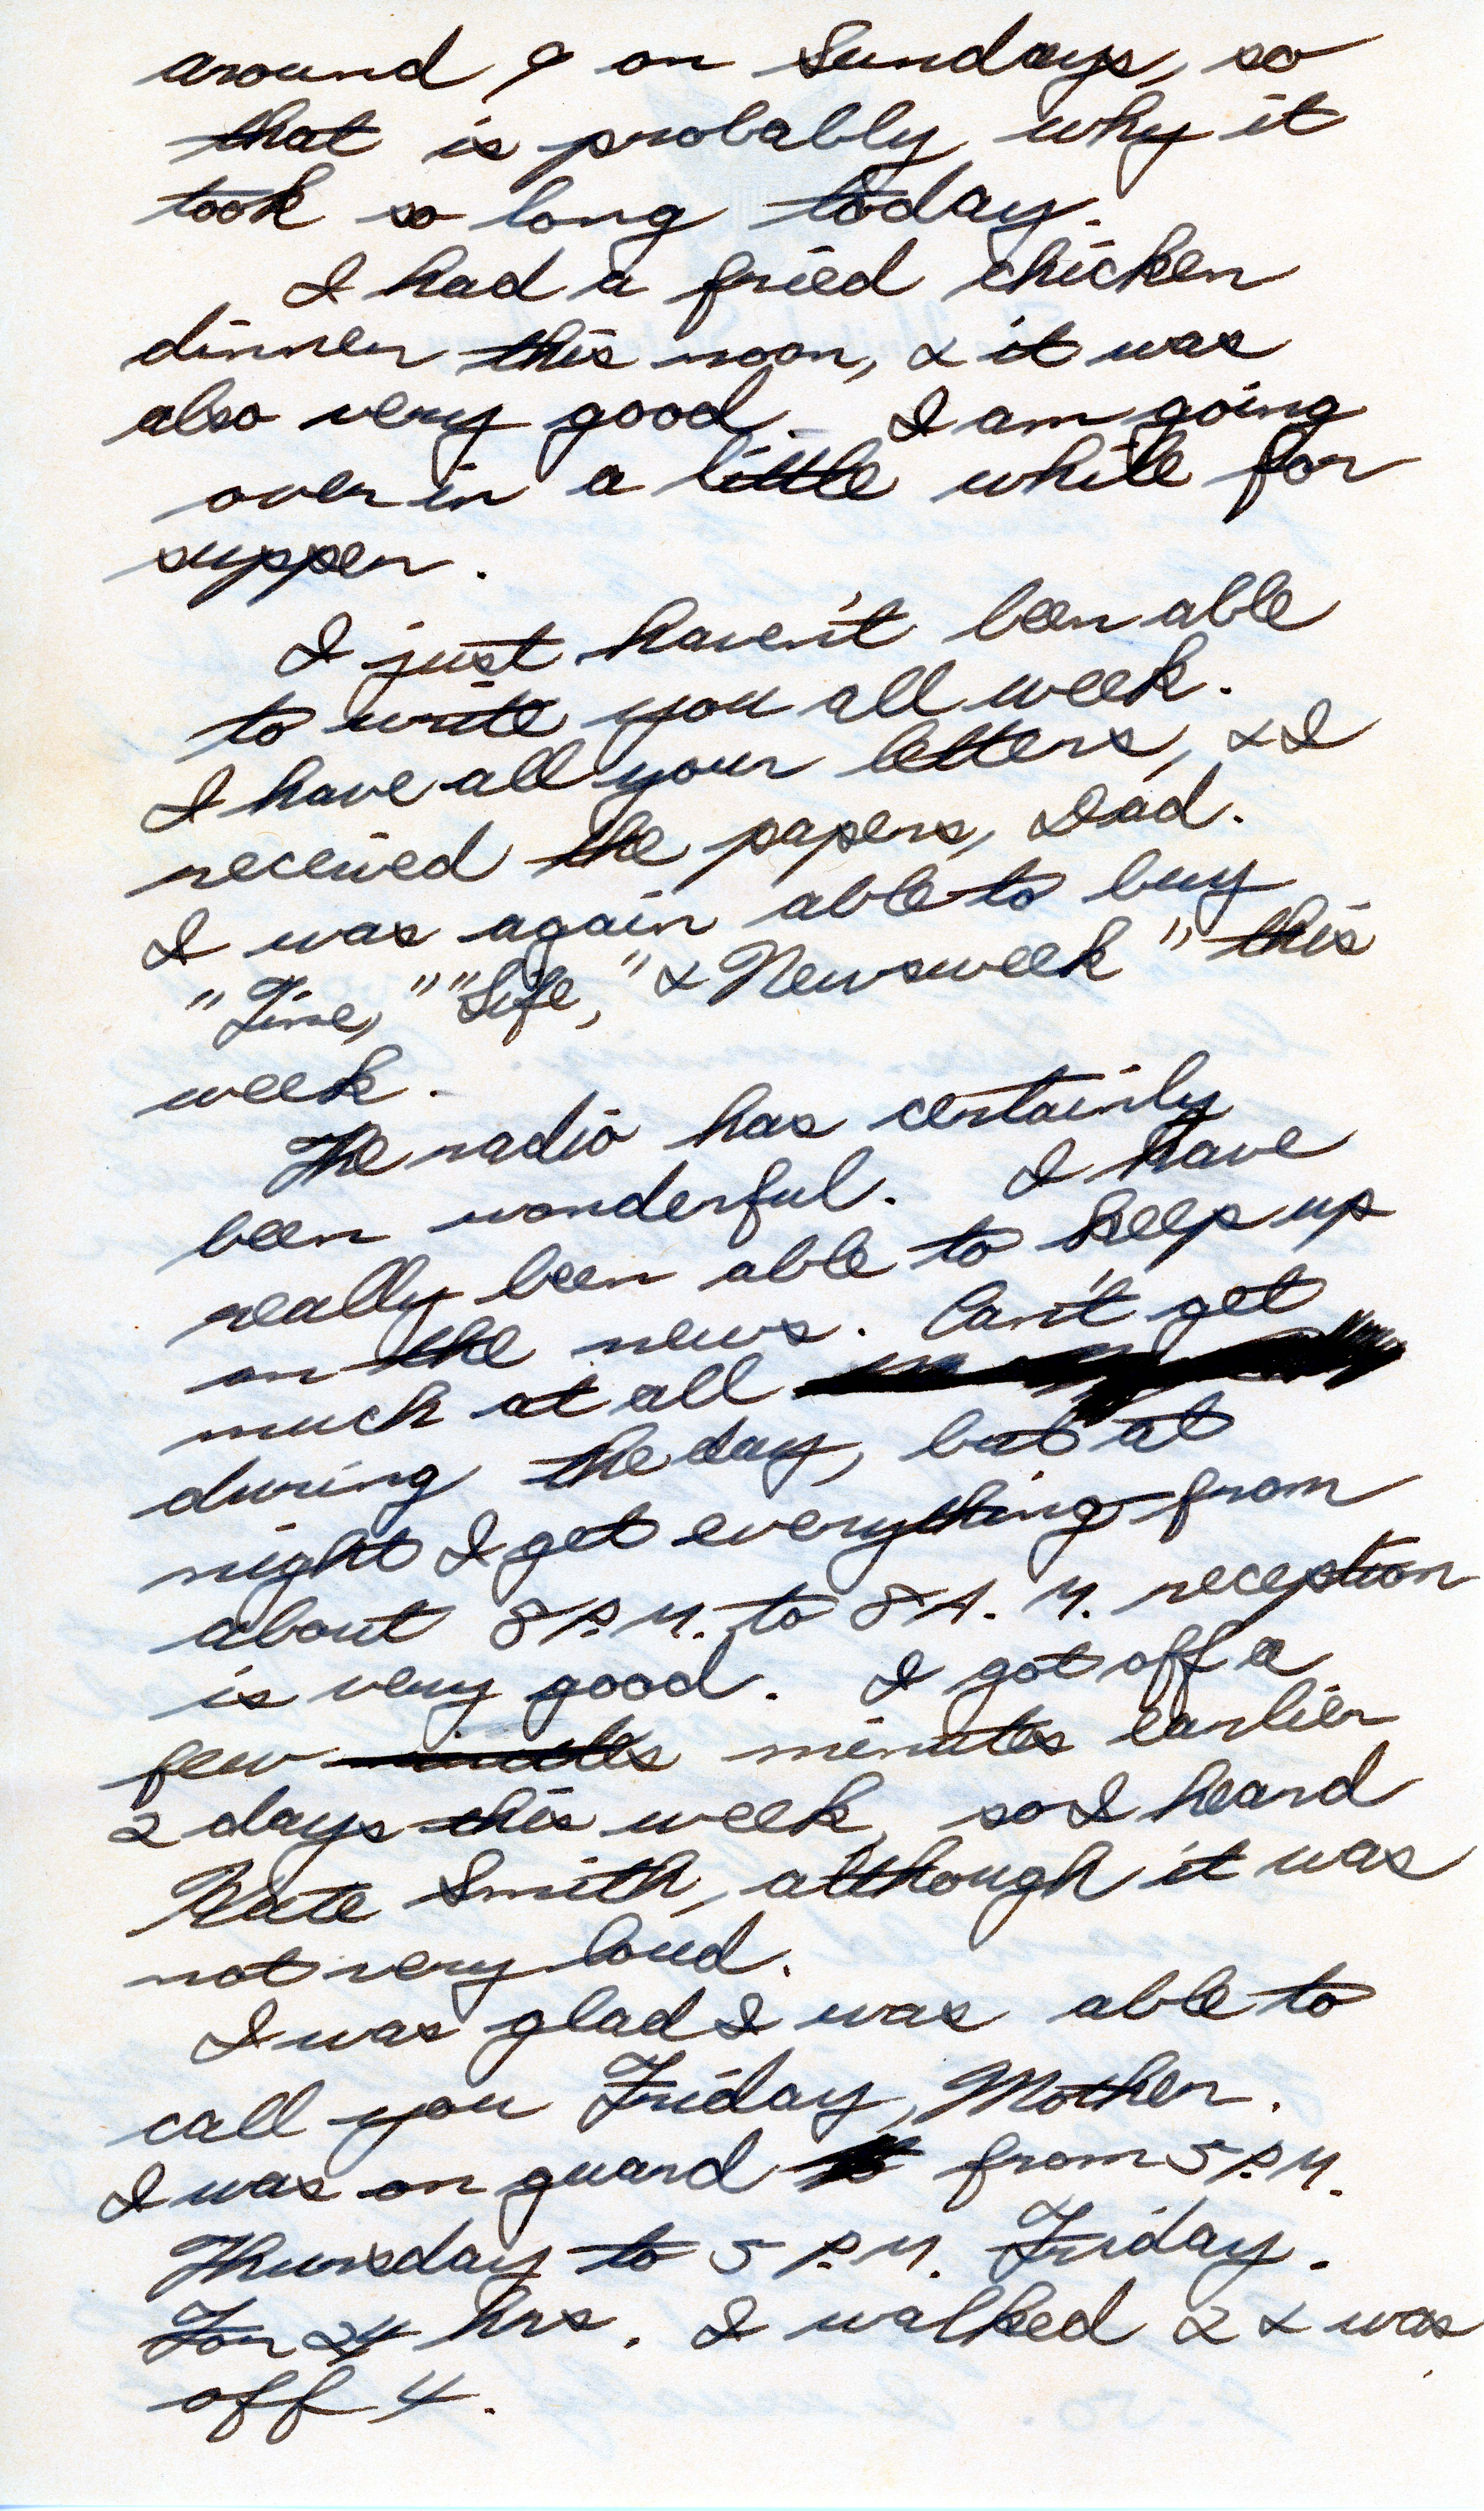 around 9 on Sundays, so
that is probably why it
took so long today.
I had a fried chicken
dinner this noon, & it was
also very good. I am going
over in a little while for
supper.
I just haven't been able
to write you all week.
I have all your letters, & I
received the papers, Dad.
I was again able to buy
"Time," "Life," & Newsweek" this
week.
The radio has certainly
been wonderful. I have
really been able to keep up
on the news. Can't get
much at all
during the day, but at
night I get everything from
about 8 P.M. to 8 A.M. reception
is very good. I got off a
few minutes earlier
2 days this week, so I heard
Kate Smith, although it was
not very loud.
I was glad I was able to
call you Friday, Mother.
I was on guard from 5 P.M.
Thursday to 5 P.M. Friday.
For 24 hrs. I walked 2 & was
off 4.